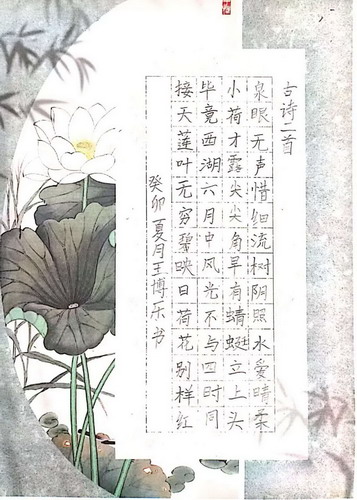 古诗二首
泉眼无声惜细流树阴照水爱晴柔
小荷才露尖尖角早有蜻蜓立上头
毕竟西湖六月中风光不与四时同
接天莲叶无穷碧映日荷花别样红
癸卯夏月王博乐书